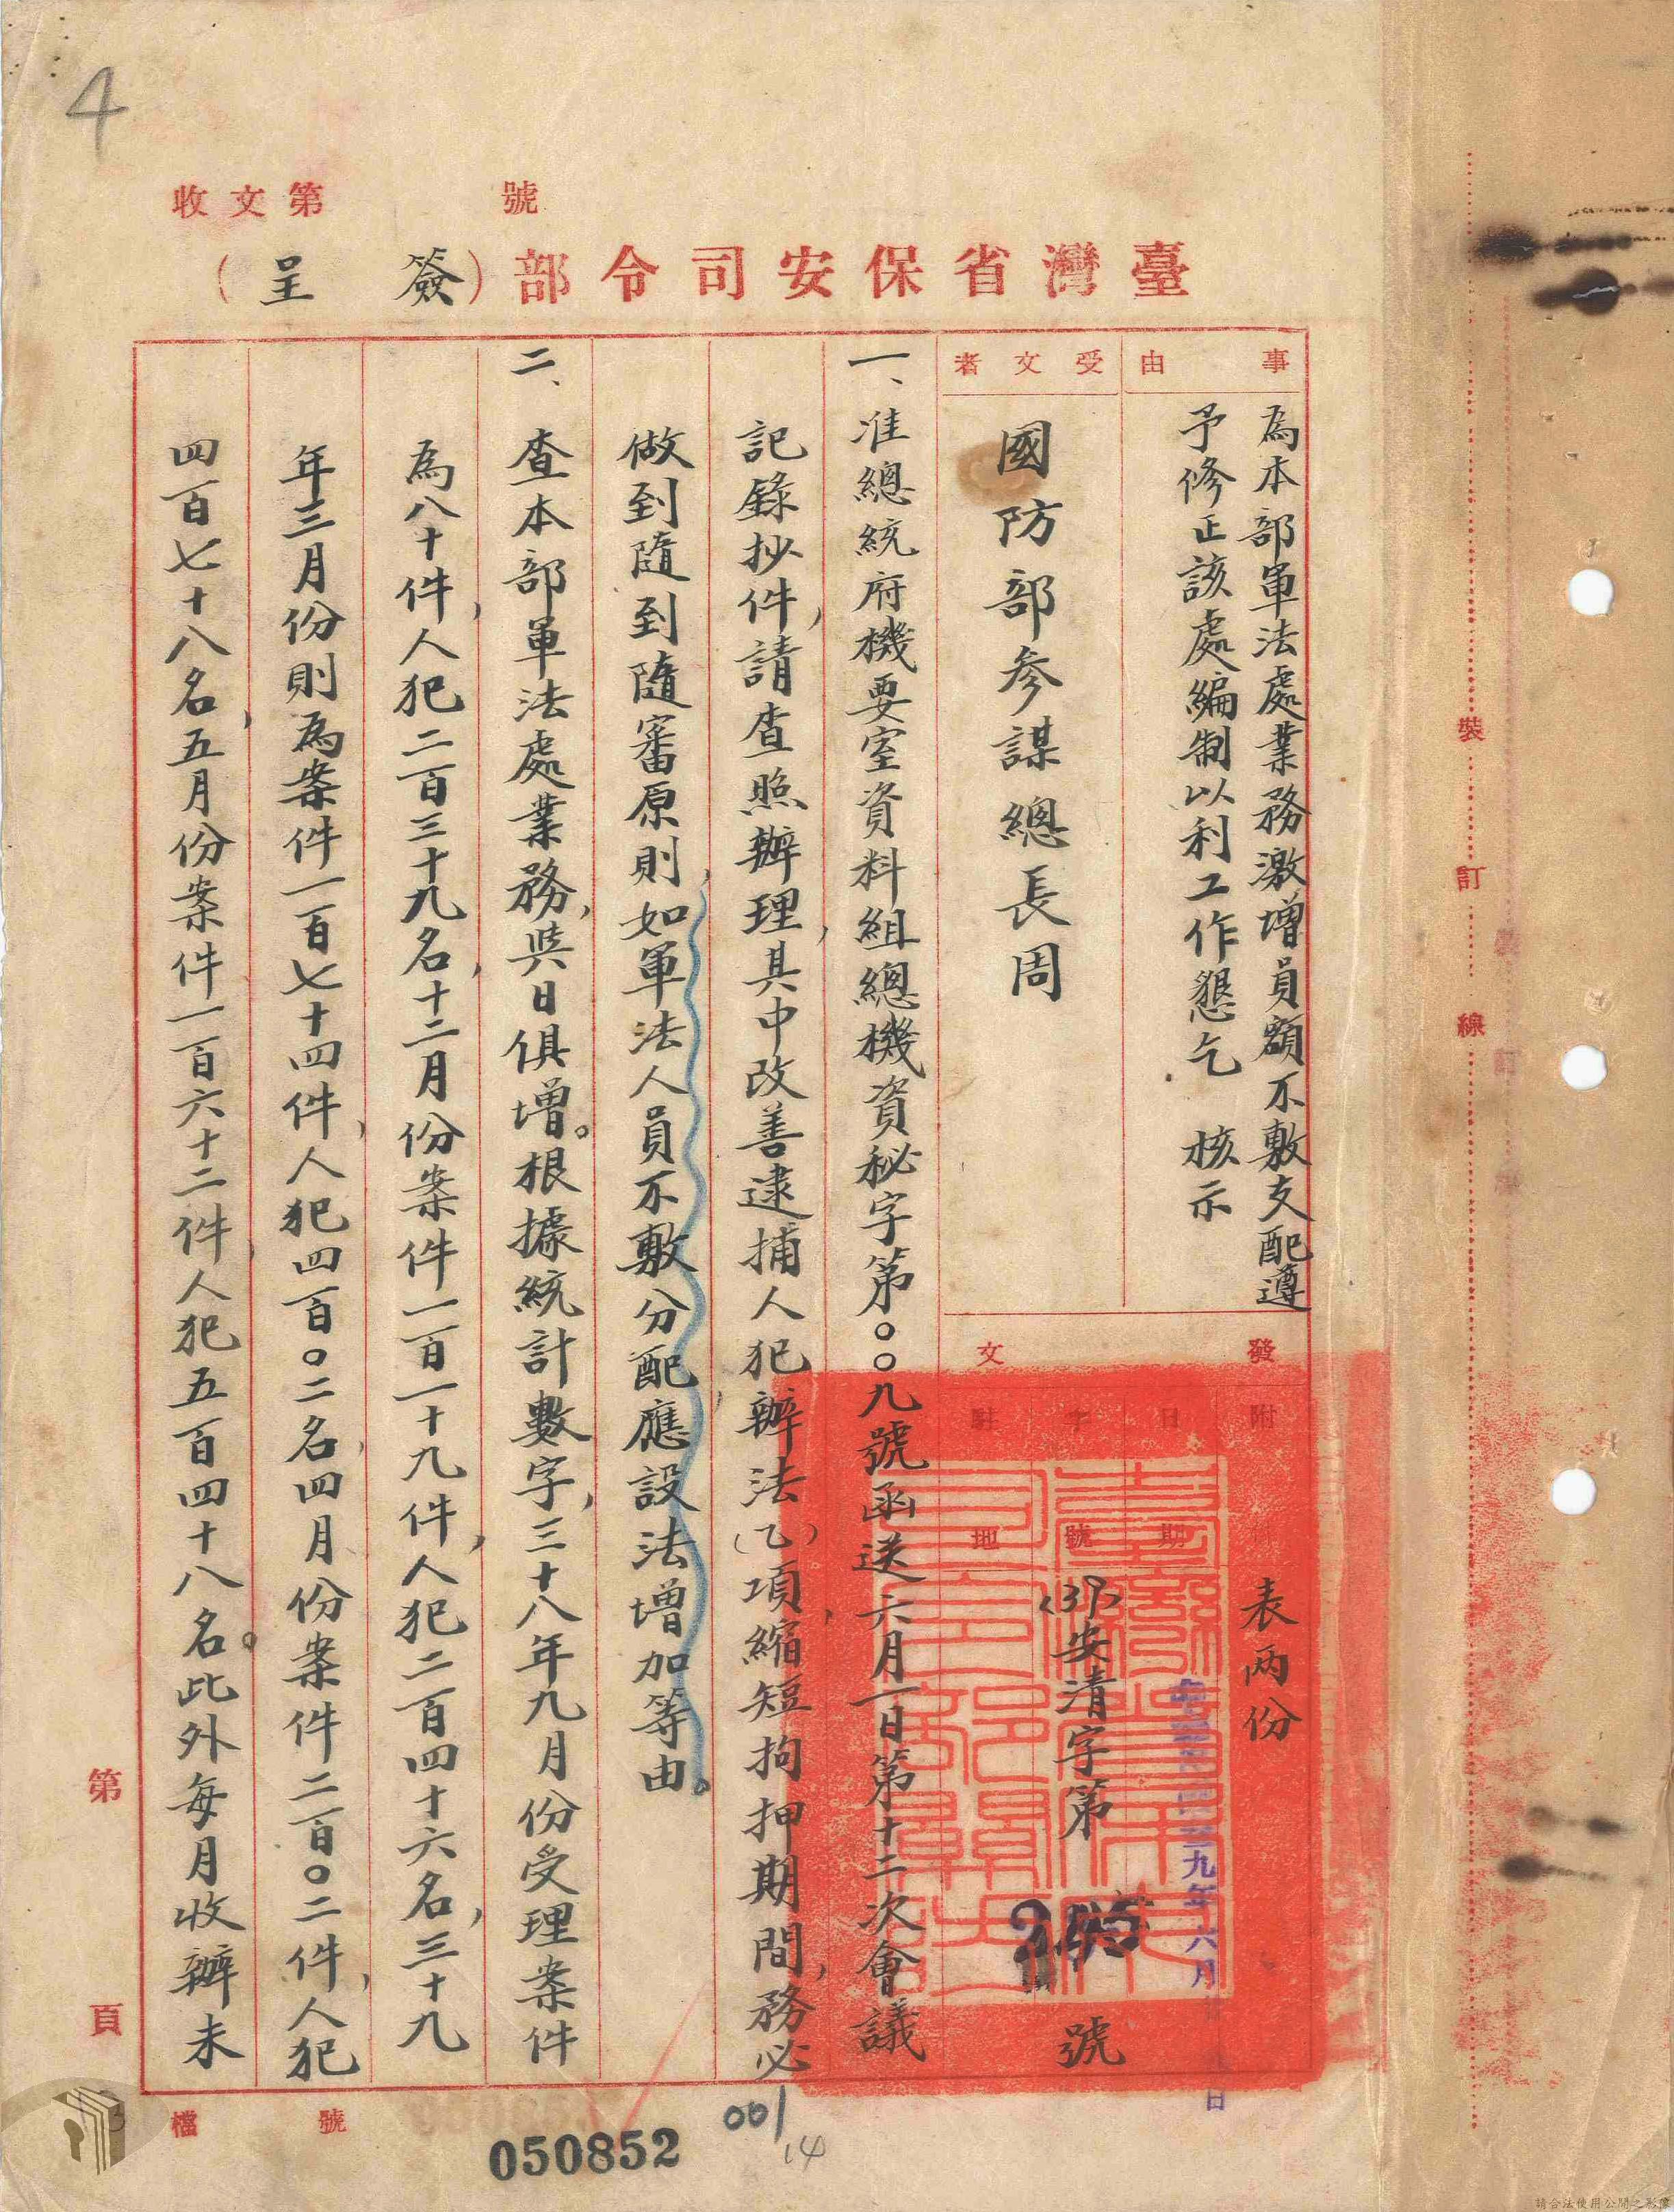 4
收文第 號
臺灣省保安司令部(簽呈)
事由
為本部軍法處業務激增員額不敷支配遵
予修正該處編制以利工作懇乞 核示
受文者
國防部參謀總長周
發文
附件
表两份
日期
九年六月 日
字號
(39)安清字第 號
駐地
一、准總統府機要室資料組總機資秘字第〇〇九號函送六月一日第十二次會議
記錄抄件,請查照辦理,其中改善逮捕人犯辦法(乙)項,縮短拘押期間,務必
做到隨到隨審原則,如軍法人員不敷分配,應設法增加等由。
二、查本部軍法處業務,與日俱增。根據統計數字,三十八年九月份受理案件
為八十件,人犯二百三十九名,十二月份案件一百一十九件,人犯二百四十六名,三十九
年三月份則為案件一百七十四件,人犯四百〇二名,四月份案件二百〇二件,人犯
四百七十八名,五月份案件一百六十二件,人犯五百四十八名。此外每月收辦未
第 頁
檔 號
裝 訂 線
050852
001
14
請合法使用公開之影像